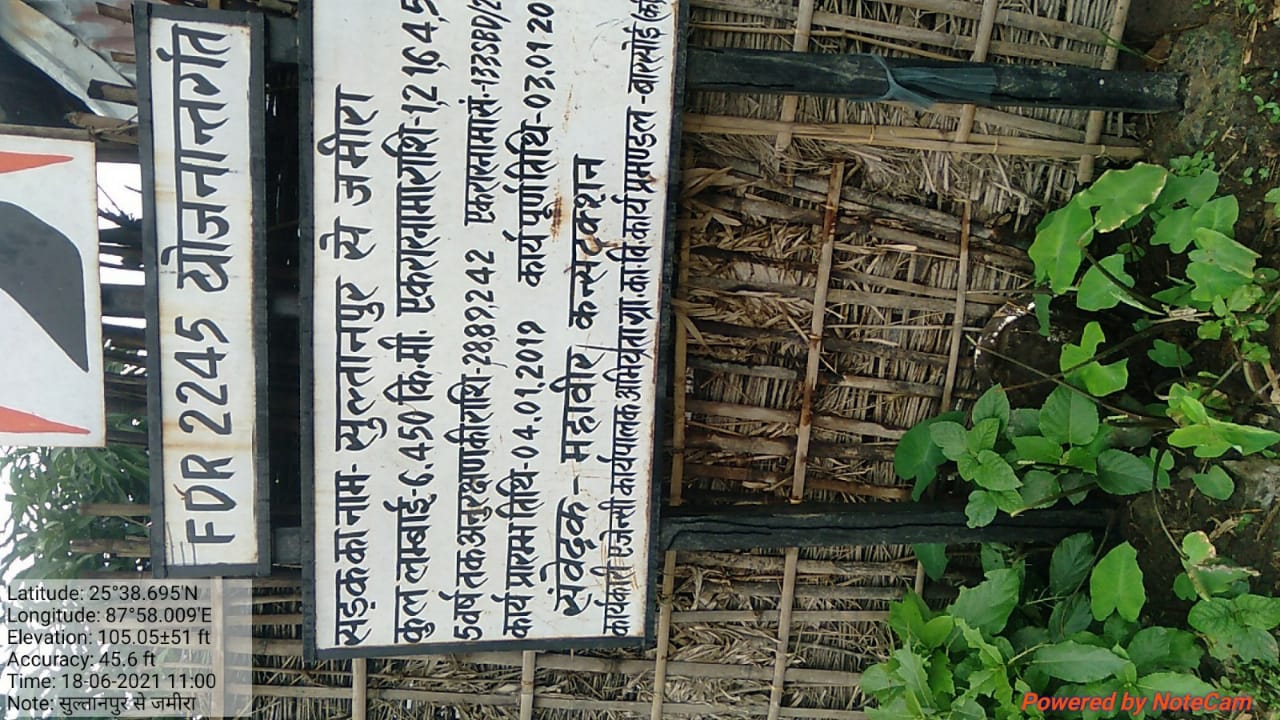 FDR 2245 योजनान्तर्गत
सड़क का नाम- सुल्तानपुर से जमीरा
कुल लम्बाई-6.450 कि.मी. एकरारनामा राशि-1,21,64,5
5 वर्ष तक अनुरक्षण की राशि-28,89,242 एकरारनामा सं.-133SBD/2
कार्य प्रारम्भ तिथि-04.01.2019 कार्य पूर्ण तिथि-03.01.20
संवेदक - महावीर कन्सट्रक्शन
कार्यकारी एजेन्सी कार्यपालक अभियंता ग्रा.का.वि.कार्य प्रमण्डल -बारसोई (क
Latitude: 25°38.695'N
Longitude: 87°58.009'E
Elevation: 105.05±51 ft
Accuracy: 45.6 ft
Time: 18-06-2021 11:00
Note: सुल्तानपुर से जमीरा
Powered by NoteCam